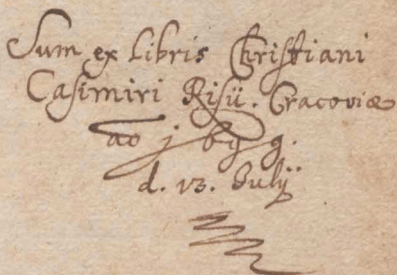 Sum ex Libris Christiani
Casimiri Risii. Cracoviæ
ao
d. 13. Julij